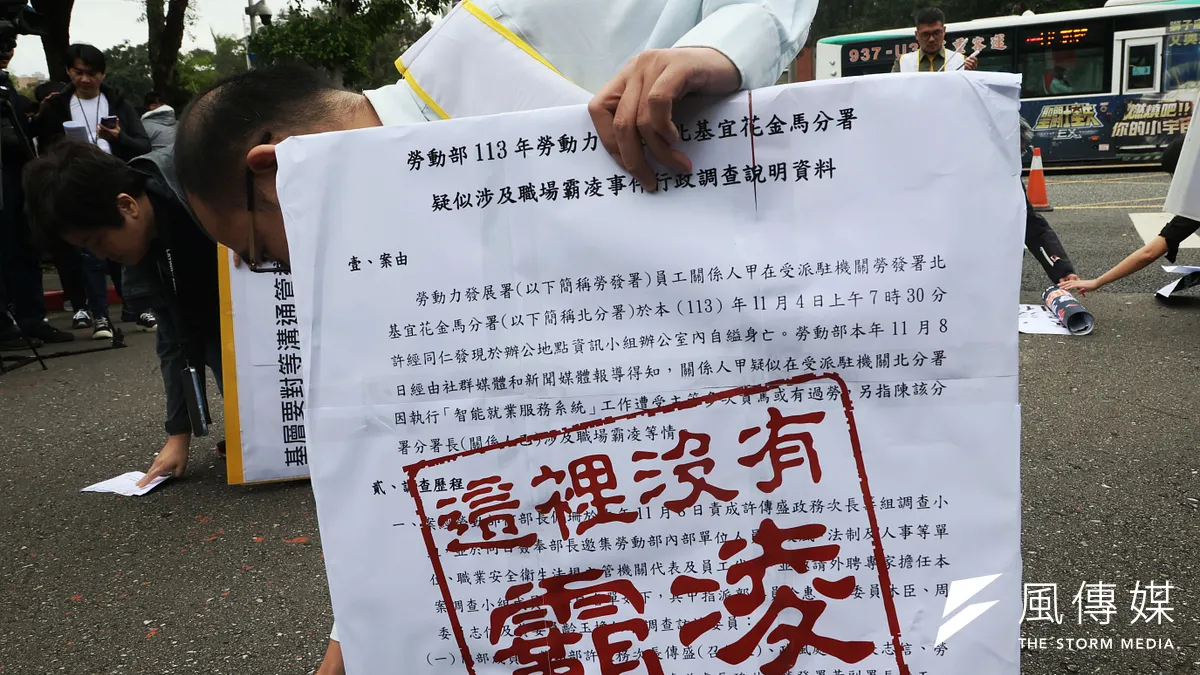 勞動部113年勞動力 北基宜花金馬分署
疑似涉及職場霸凌事件行政調查說明資料
壹、案由
勞動力發展署(以下簡稱勞發署)員工關係人甲在受派駐機關勞發署北
基宜花金馬分署(以下簡稱北分署)於本(113)年11月4日上午7時30分
許經同仁發現於辦公地點資訊小組辦公室內自縊身亡。勞動部本年11月8
日經由社群媒體和新聞媒體報導得知,關係人甲疑似在受派駐機關北分署
因執行「智能就業服務系統」工作遭受主管多次責罵或有過勞,另指陳該分
署分署長(關係人乙)涉及職場霸凌等情。
貳、調查歷程
一、 11月8日責成許傳盛政務次長 組調查小
部長邀集勞動部內部單位人 法制及人事等單
職業安全衛生法規主管機關代表及員工代 邀請外聘專家擔任本
案調查小組 如下,其中指派部 委員木臣、周
委 志 調查訪 委員:
(一) 部 許 次長傳盛(召 志信、勞
這裡沒有
霸凌
基層要對等溝通管
937
燃燒吧!!
你的小宇
EX
風傳媒
THE STORM MEDIA